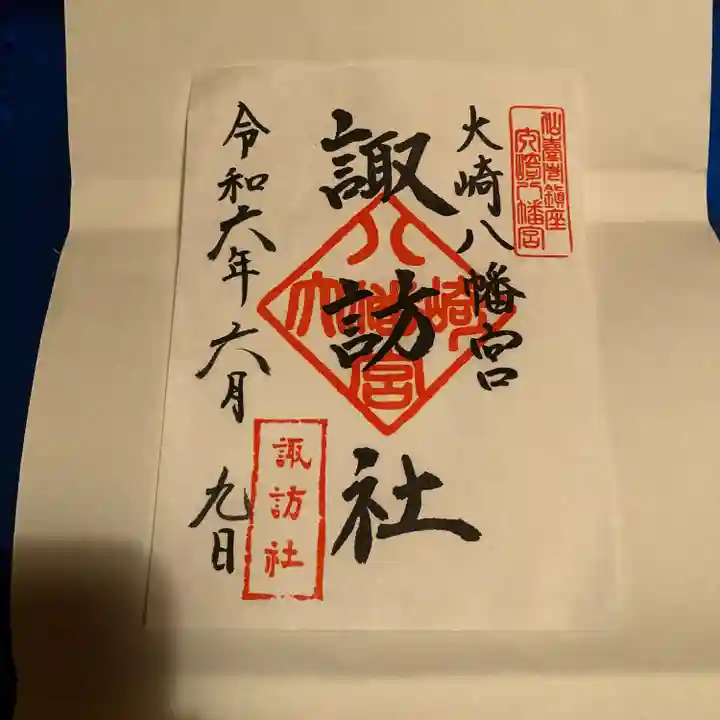 仙臺市鎮座
大崎八幡宮
大崎八幡宮
諏訪社
大崎八幡宮
諏訪社
令和六年六月九日